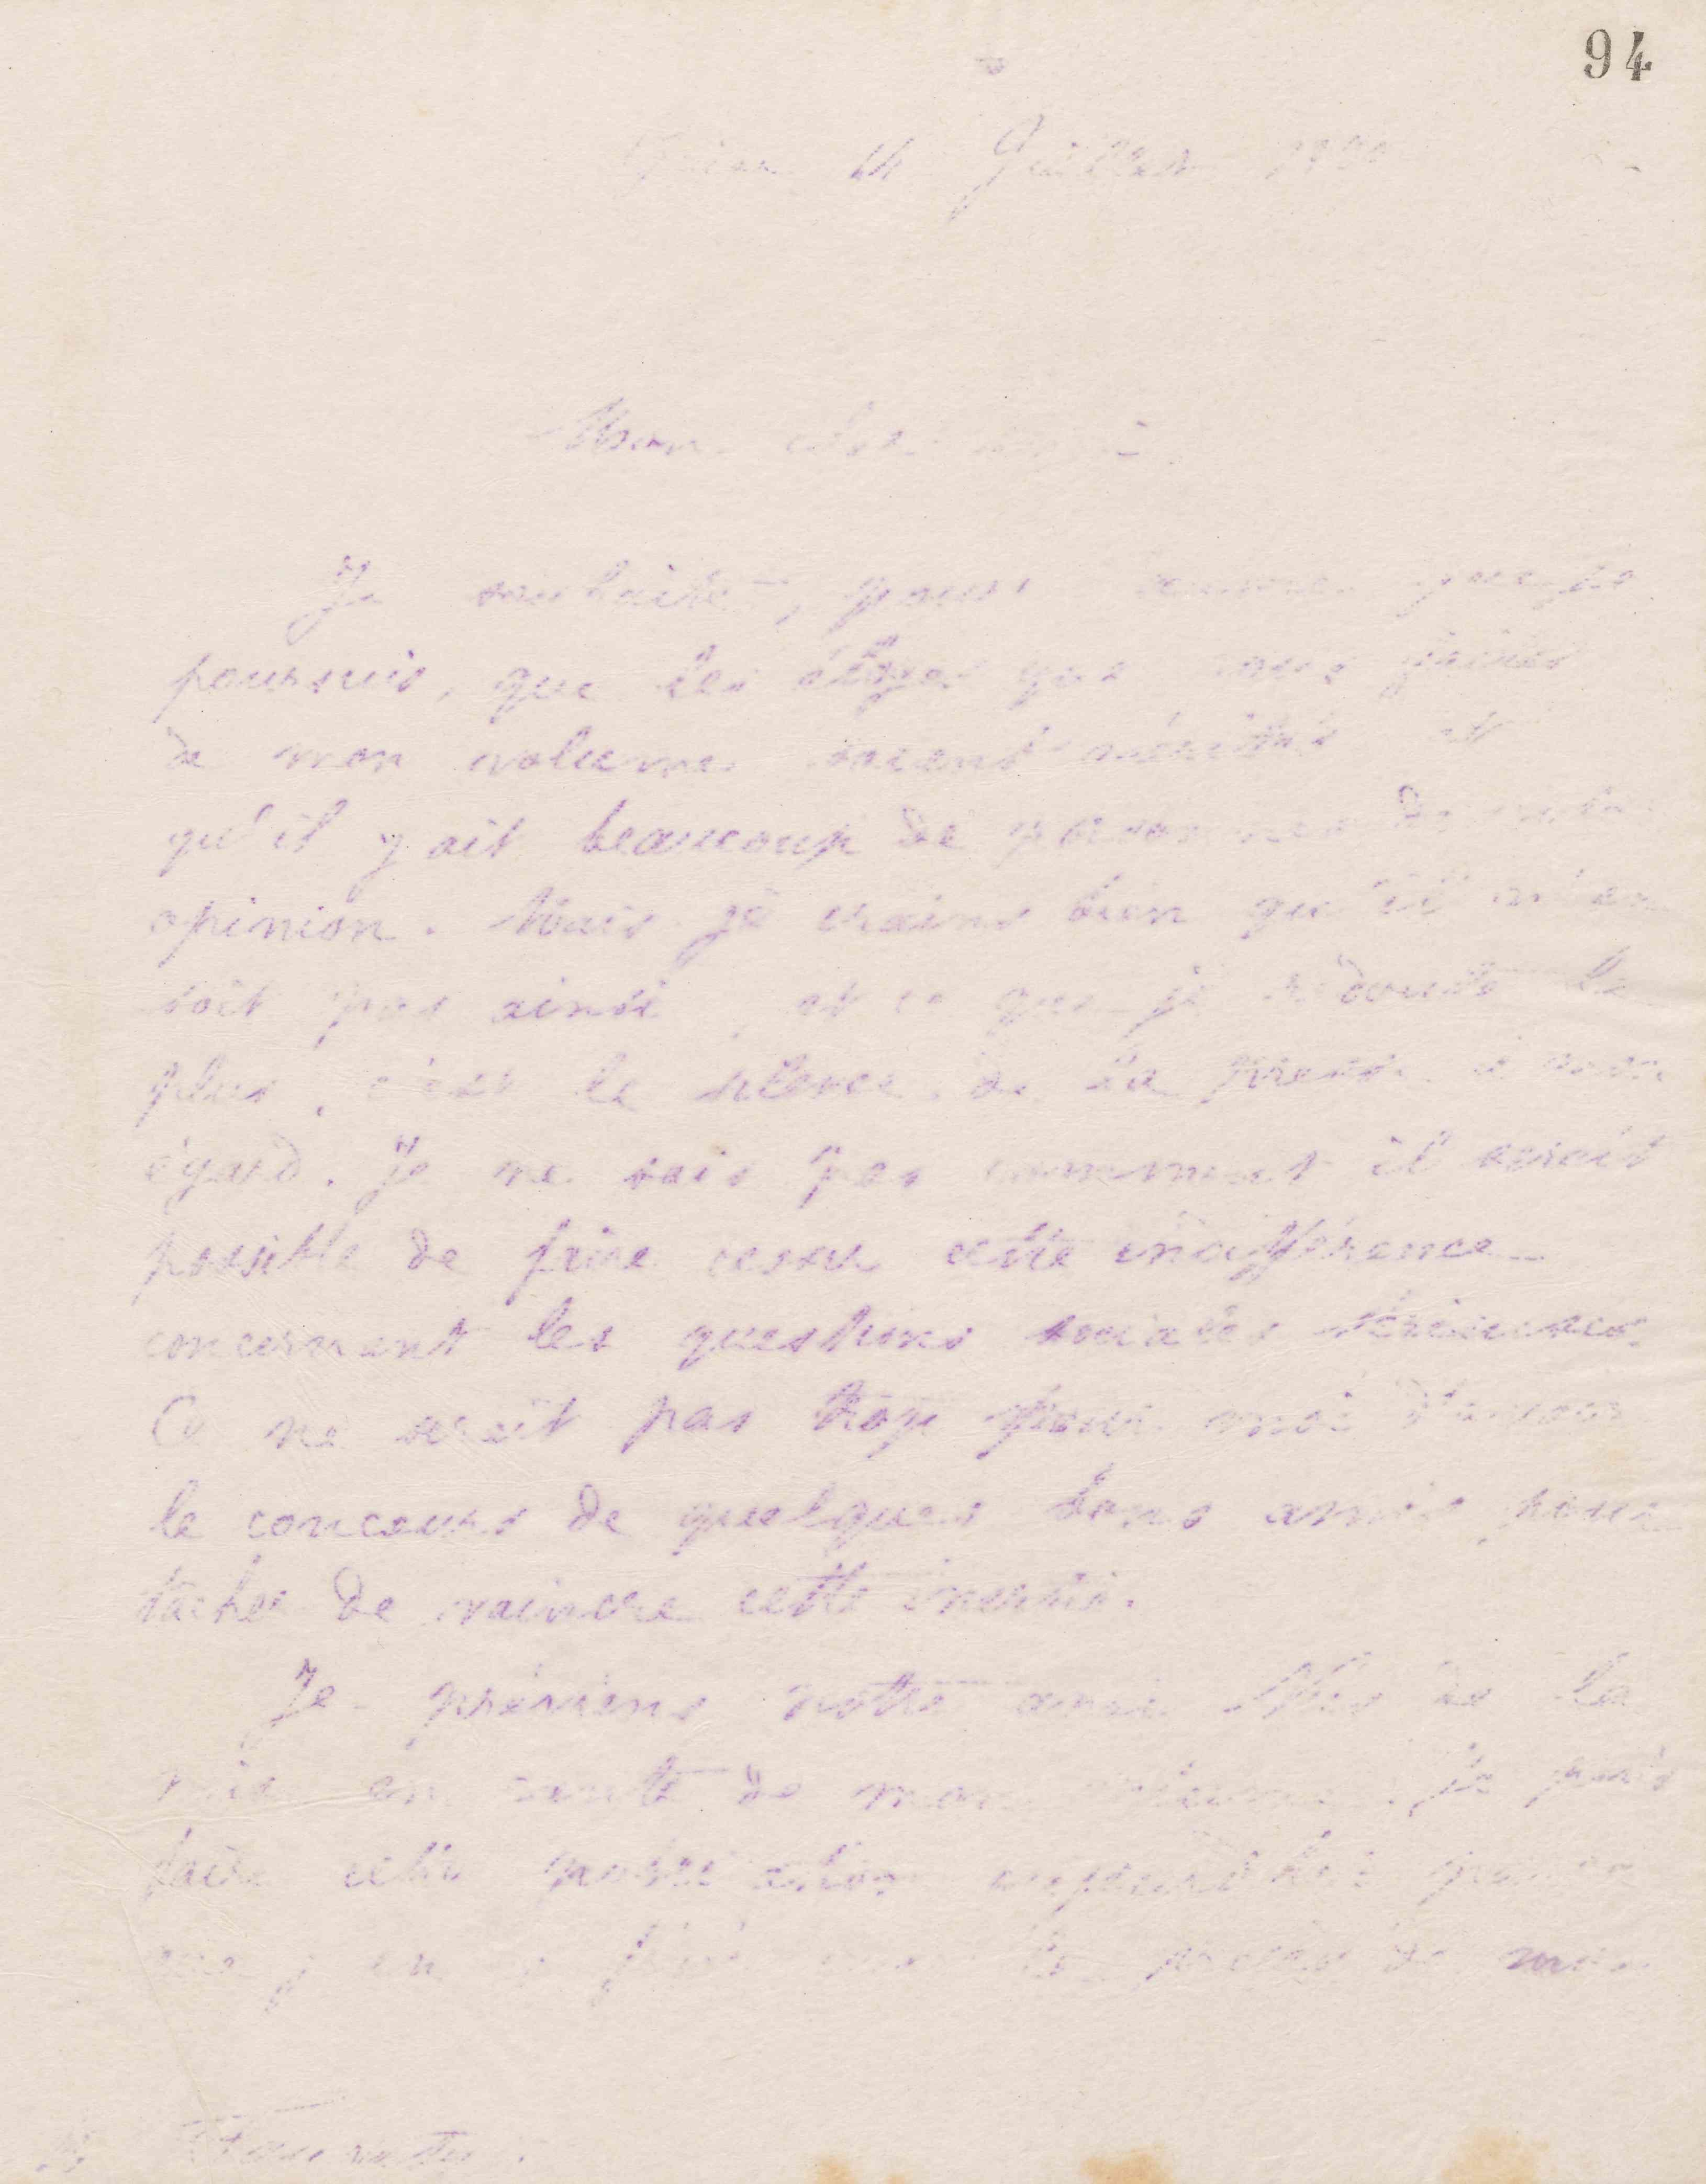 94
14 Juillet
Mon cher
Je souhaite, pour que je
poursuis, que les éloges que vous faites
de mon volume soient mérités et
qu'il y ait beaucoup de personnes de votre
opinion. Mais je crains bien qu'il n'en
soit pas ainsi, et ce que je redoute le
plus, c'est le silence de la presse à mon
égard. Je ne sais pas comment il serait
possible de faire cesser cette indifférence
concernant les questions sociales sérieuses.
Ce ne serait pas trop pour moi d'avoir
le concours de quelques bons amis pour
tâcher de vaincre cette inertie.
Je préviens notre ami de la
mise en vente de mon Je puis
faire cette
de mon